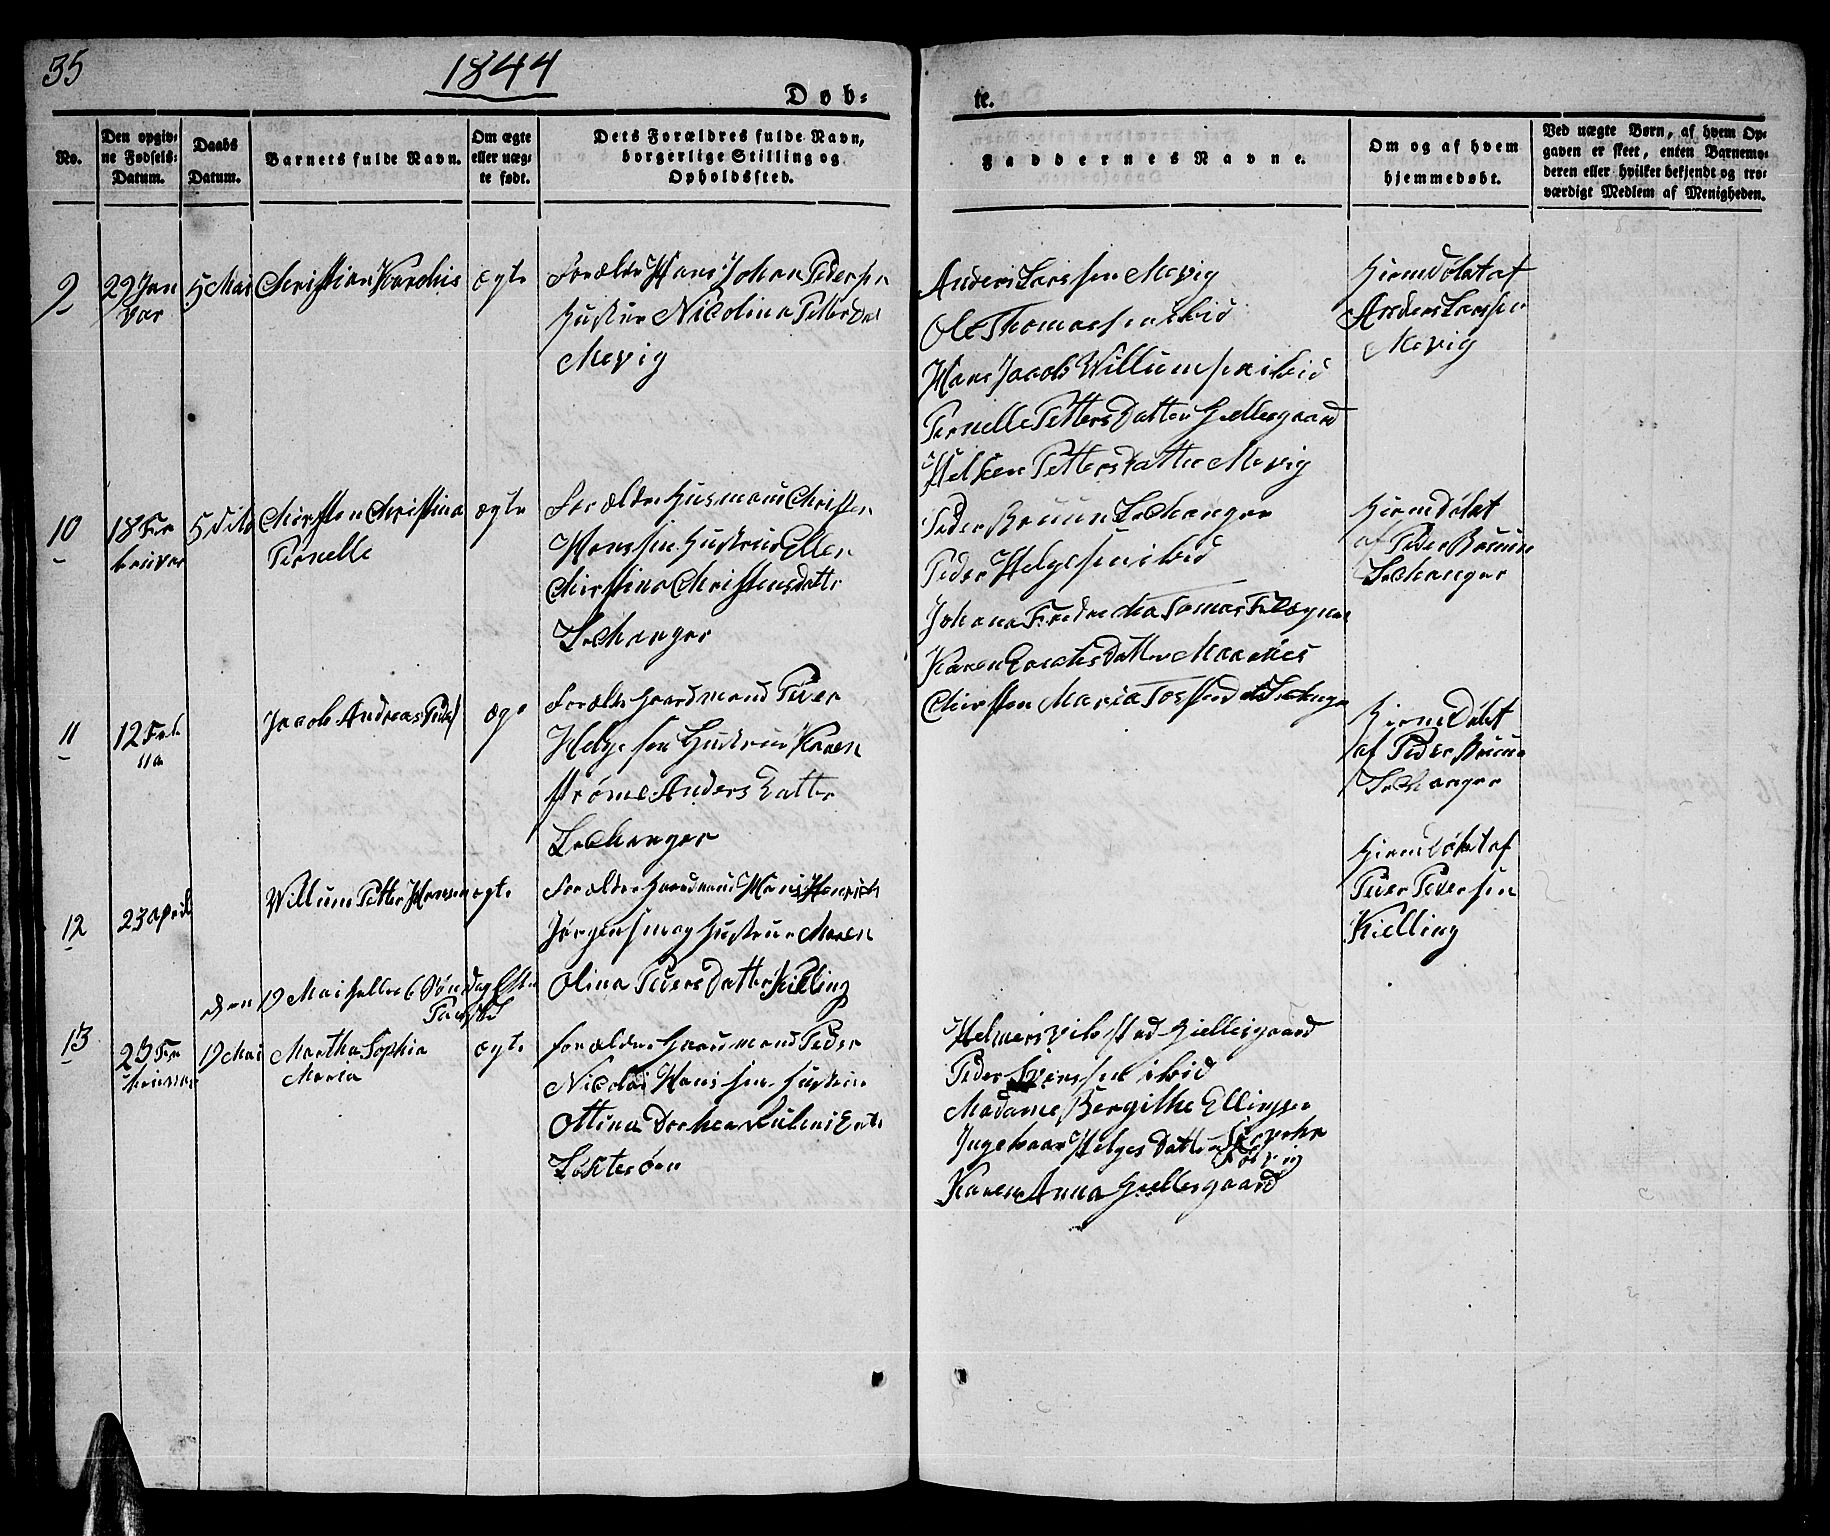 35
1844
Døb-
te.
No.
Den opgiv-
ne Fødsels-
Datum.
Daabs
Datum.
Barnets fulde Navn.
Om ægte
eller uæg-
te født.
Dets Forældres fulde Navn,
borgerlige Stilling og
Opholdssted.
Faddernes Navne.
Om og af hvem
hjemmedøbt.
Ved uægte Børn, af hvem Op-
gaven er skeet, enten Barnemo-
deren eller hvilket bekjendt og tro-
værdigt Medlem af Menigheden.
9
29 Jan
var
5 Mai
Christian Karolius
ægte
Forældre Hans Johan Pedersen
Hustru Nicolina Petters Dat
Mevig
Anders Larssen Mevig
Ole Thomassen ibid
Hans Jacob Willumsen ibid
Pernelle Petters Datter Gjellesgaard
Petters Datter Mevig
Hiemdøbt af
Anders Larssen
Mevig
10
18 Fe
bruvar
5 dito
Chirsten Christina
Pernelle
ægte
Forældre Husmand Christen
Hanssen Hustrue Ellen
Chirstina Christensdatte
Sechanger
Peder Bruun Sechanger
Peder Helgesen ibid
Johana
Karen Datter
Chirsten Maria
Hiemdøbt
af Peder Bruun
Sechanger
11
12 Feb
Jacob Andreas Peder
ægte
Forældre Gaardmand Peder
Helgesen Hustrue Karen
Anders Datter
Sechanger
Hiemdøbt
af Peder Bruun
Sechanger
12
23 April
Willum Petter Hansen
ægte
Forældre Gaardmand Hans Henrich
Jørgensen og Hustrue Maren
Olina Peders Datter Kielling
Hiemdøbt af
Peder Pedersen
Kielling
den 19 Mai heller 6 Søndag Efter
Paaske
13
23 Fe
bruvar
19 Mai
Martha Sophia
Maria
ægte
Forældre Gaardmand Peder
Nicolai Hanssen Hustrue
Ottina Dorthea
Løkterøen
Gjellesgaard
Peder ibid
Madame Bergithe Ellingsen
Ingebaar Helges Datter
Karen Anna Gjellesgaard